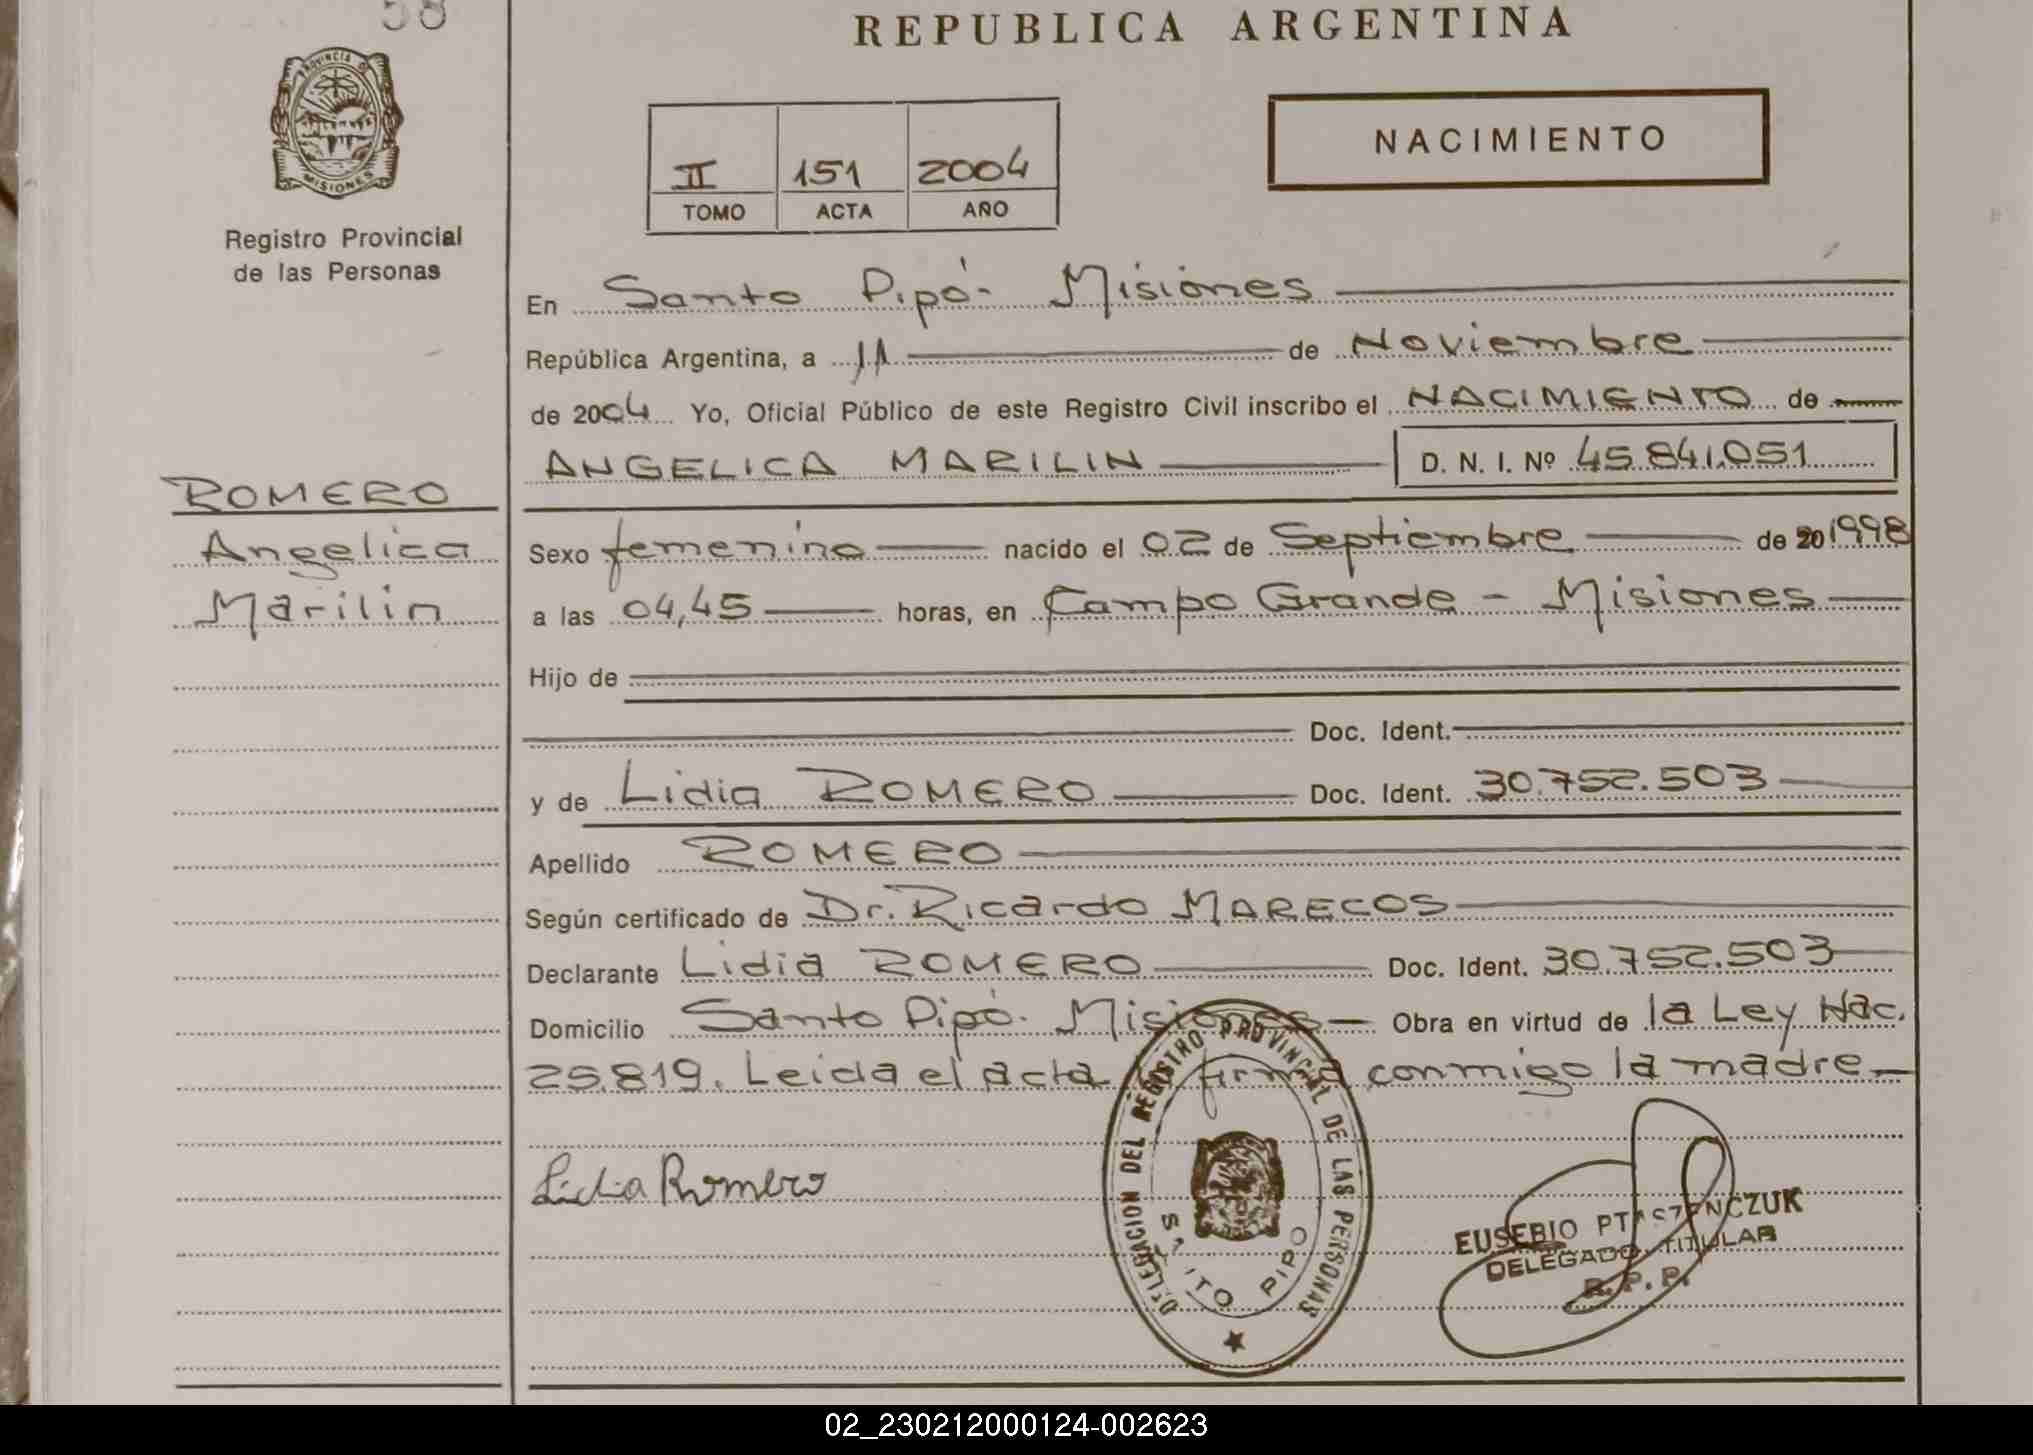 58
REPUBLICA ARGENTINA
PROVINCIA DE
MISIONES
Registro Provincial
de las Personas
II 151 2004
TOMO ACTA AÑO
NACIMIENTO
En Santo Pipó- Misiones
República Argentina, a 11 de Noviembre
de 2004 Yo, Oficial Público de este Registro Civil inscribo el NACIMIENTO de
ANGELICA MARILIN D. N. I. Nº 45.841.051
ROMERO
Angelica
Marilin
Sexo femenino nacido el 02 de Septiembre de 20 1998
a las 04,45 horas, en Campo Grande - Misiones
Hijo de
Doc. Ident.
y de Lidia ROMERO Doc. Ident. 30.752.503
Apellido ROMERO
Según certificado de Dr. Ricardo MARECOS
Declarante Lidia ROMERO Doc. Ident. 30.752.503
Domicilio Santo Pipó- Misiones Obra en virtud de la Ley Nac.
25.819. Leida el acta firma conmigo la madre
Lidia Romero
DELEGACION DEL REGISTRO PROVINCIAL DE LAS PERSONAS
PIPO
EUSEBIO PTASZENCZUK
DELEGADO TITULAR
R.P.P.
02_230212000124-002623